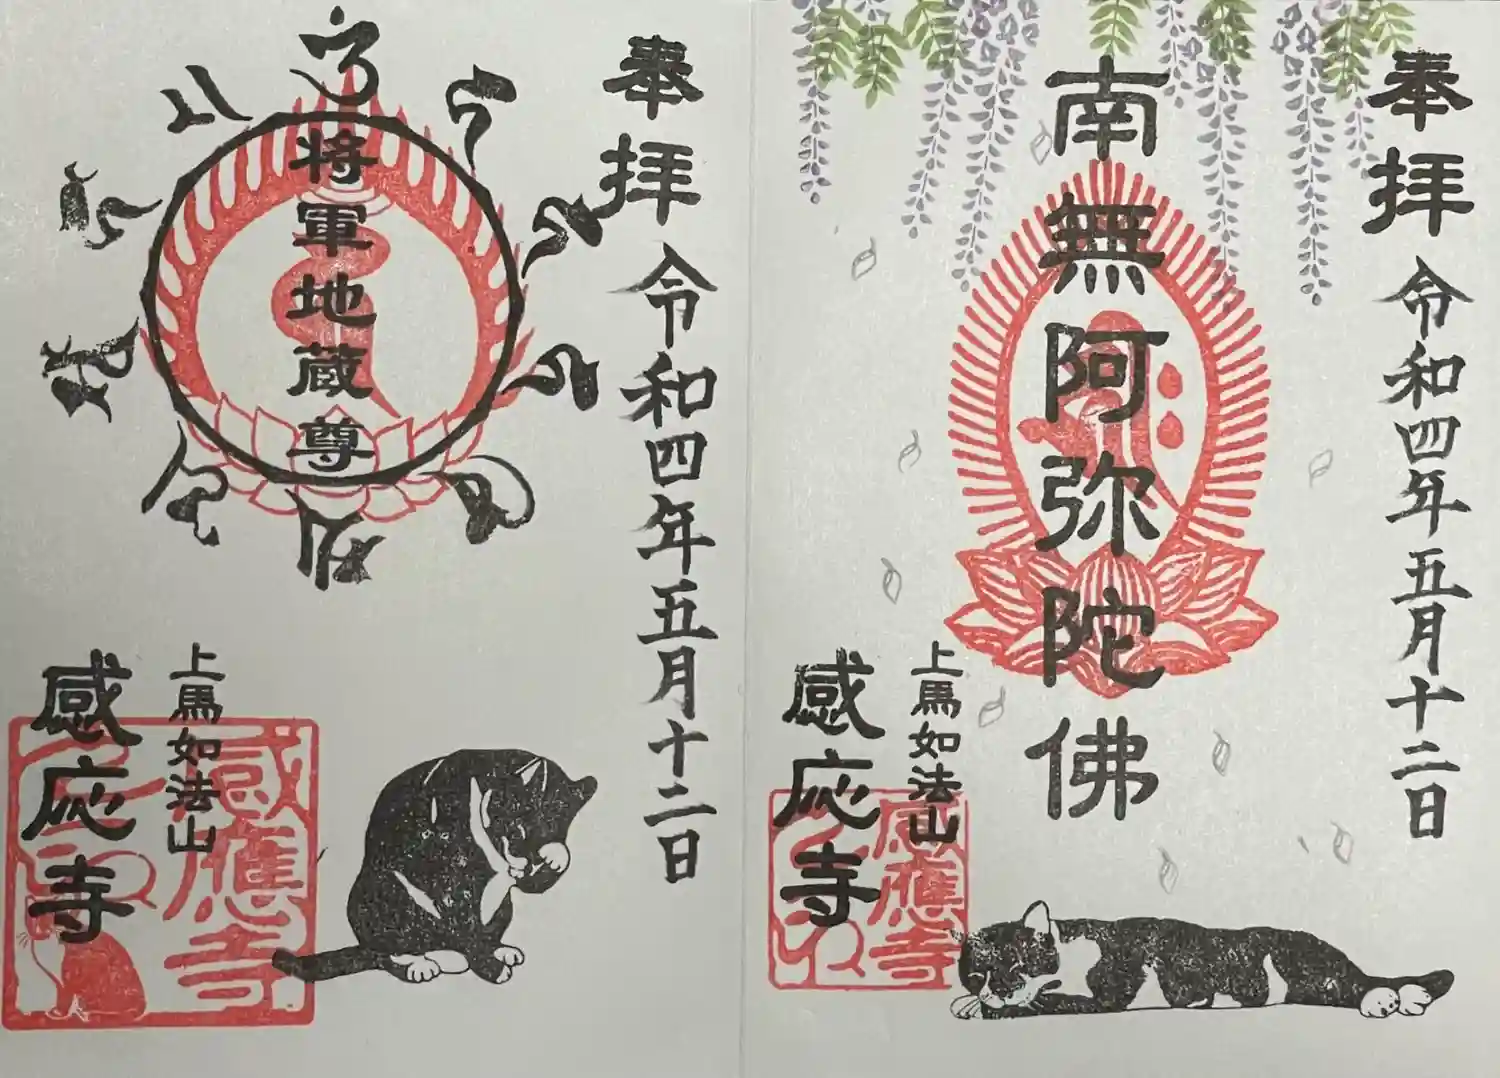 奉拝
令和四年五月十二日
南無阿弥陀佛
上馬如法山
感応寺
感應寺
奉拝
令和四年五月十二日
将軍地蔵尊
上馬如法山
感応寺
感應寺